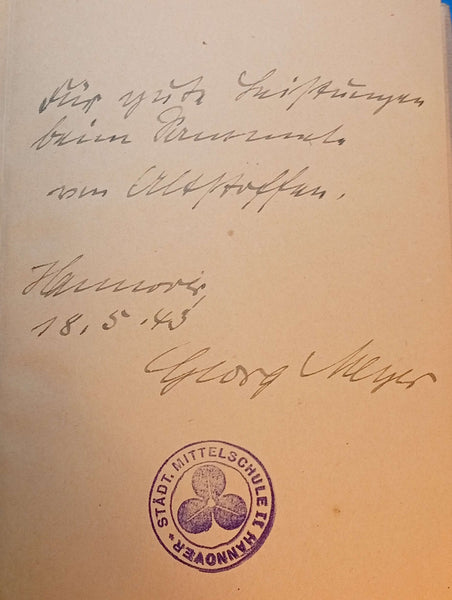 Für gute Leistungen
beim Sammeln
von Altstoffen.
Hannover,
18.5.43
Georg Meyer
STÄDT. MITTELSCHULE II HANNOVER *